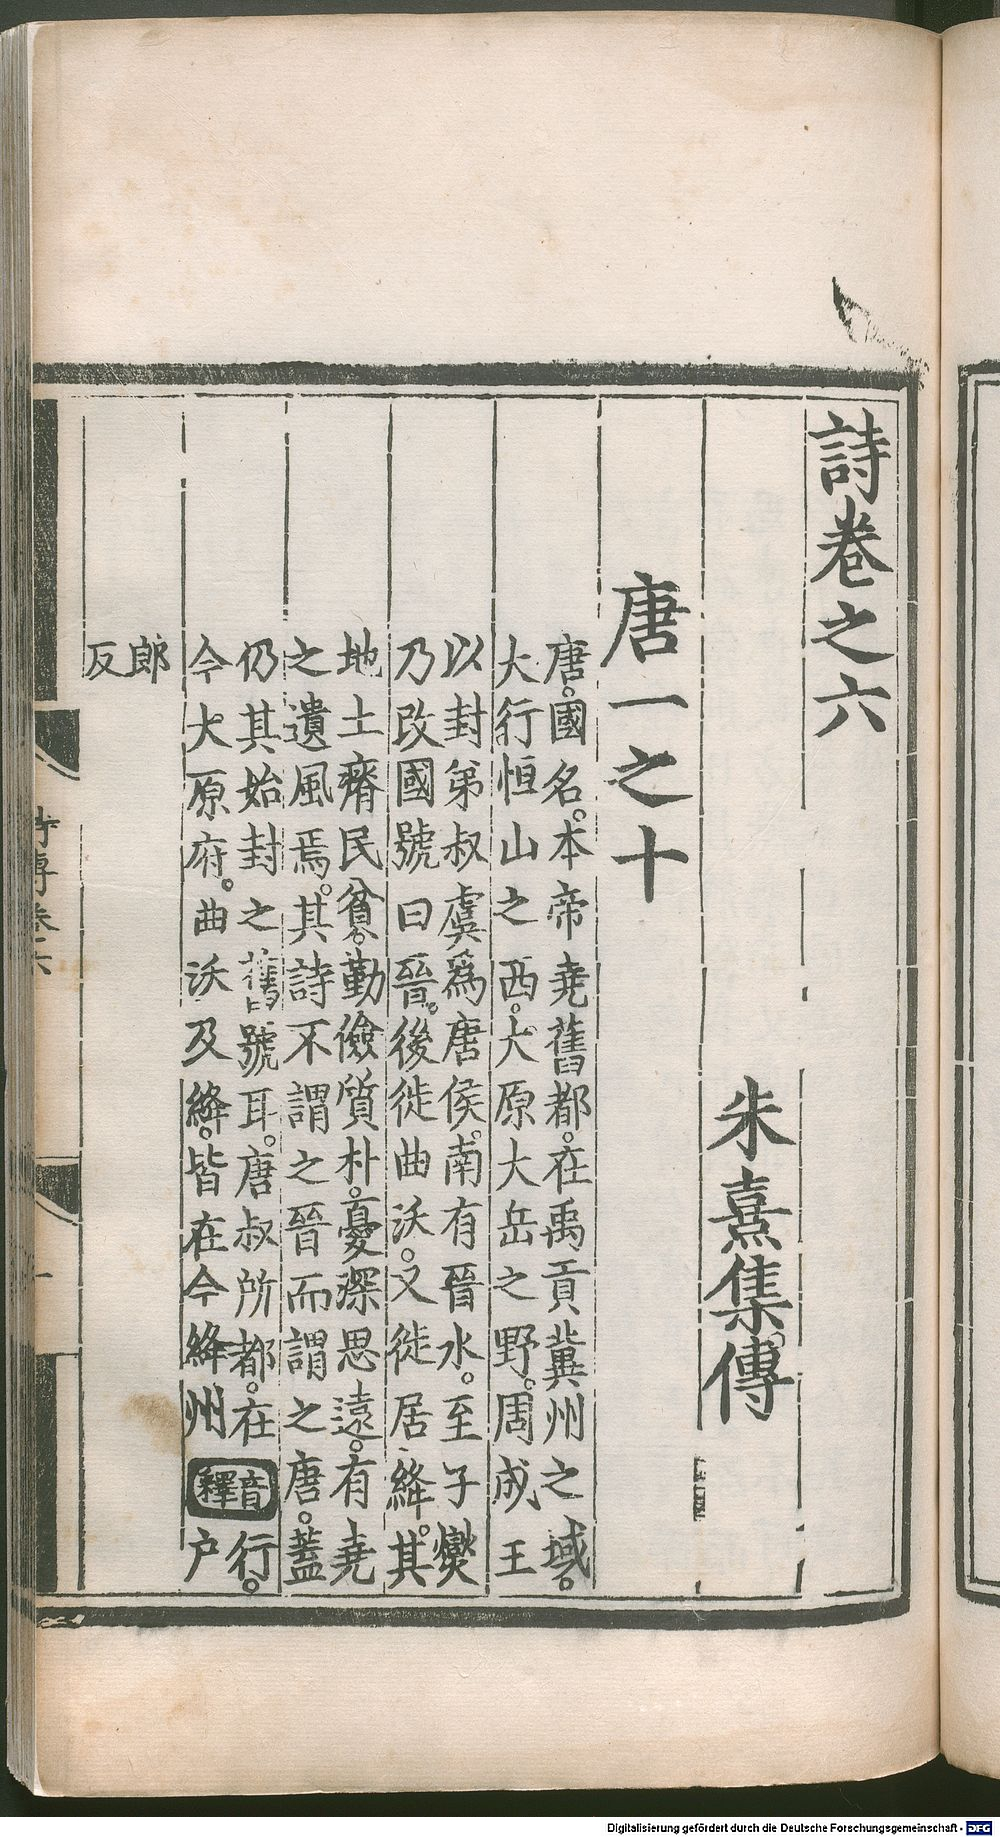 詩卷之六
朱熹集傳
唐一之十
唐。國名。本帝堯舊都。在禹貢冀州之域。
大行恒山之西。大原大岳之野。周成王
以封弟叔虞爲唐侯。南有晉水。至子燮
乃改國號曰晉。後徙曲沃。又徙居絳。其
地土瘠民貧。勤儉質朴。憂深思遠。有堯
之遺風焉。其詩不謂之晉而謂之唐。蓋
仍其始封之舊號耳。唐叔所都。在
今大原府。曲沃及絳。皆在今絳州
音釋
行。
戶
郎
反
詩傳卷六
一
Digitalisierung gefördert durch die Deutsche Forschungsgemeinschaft - DFG